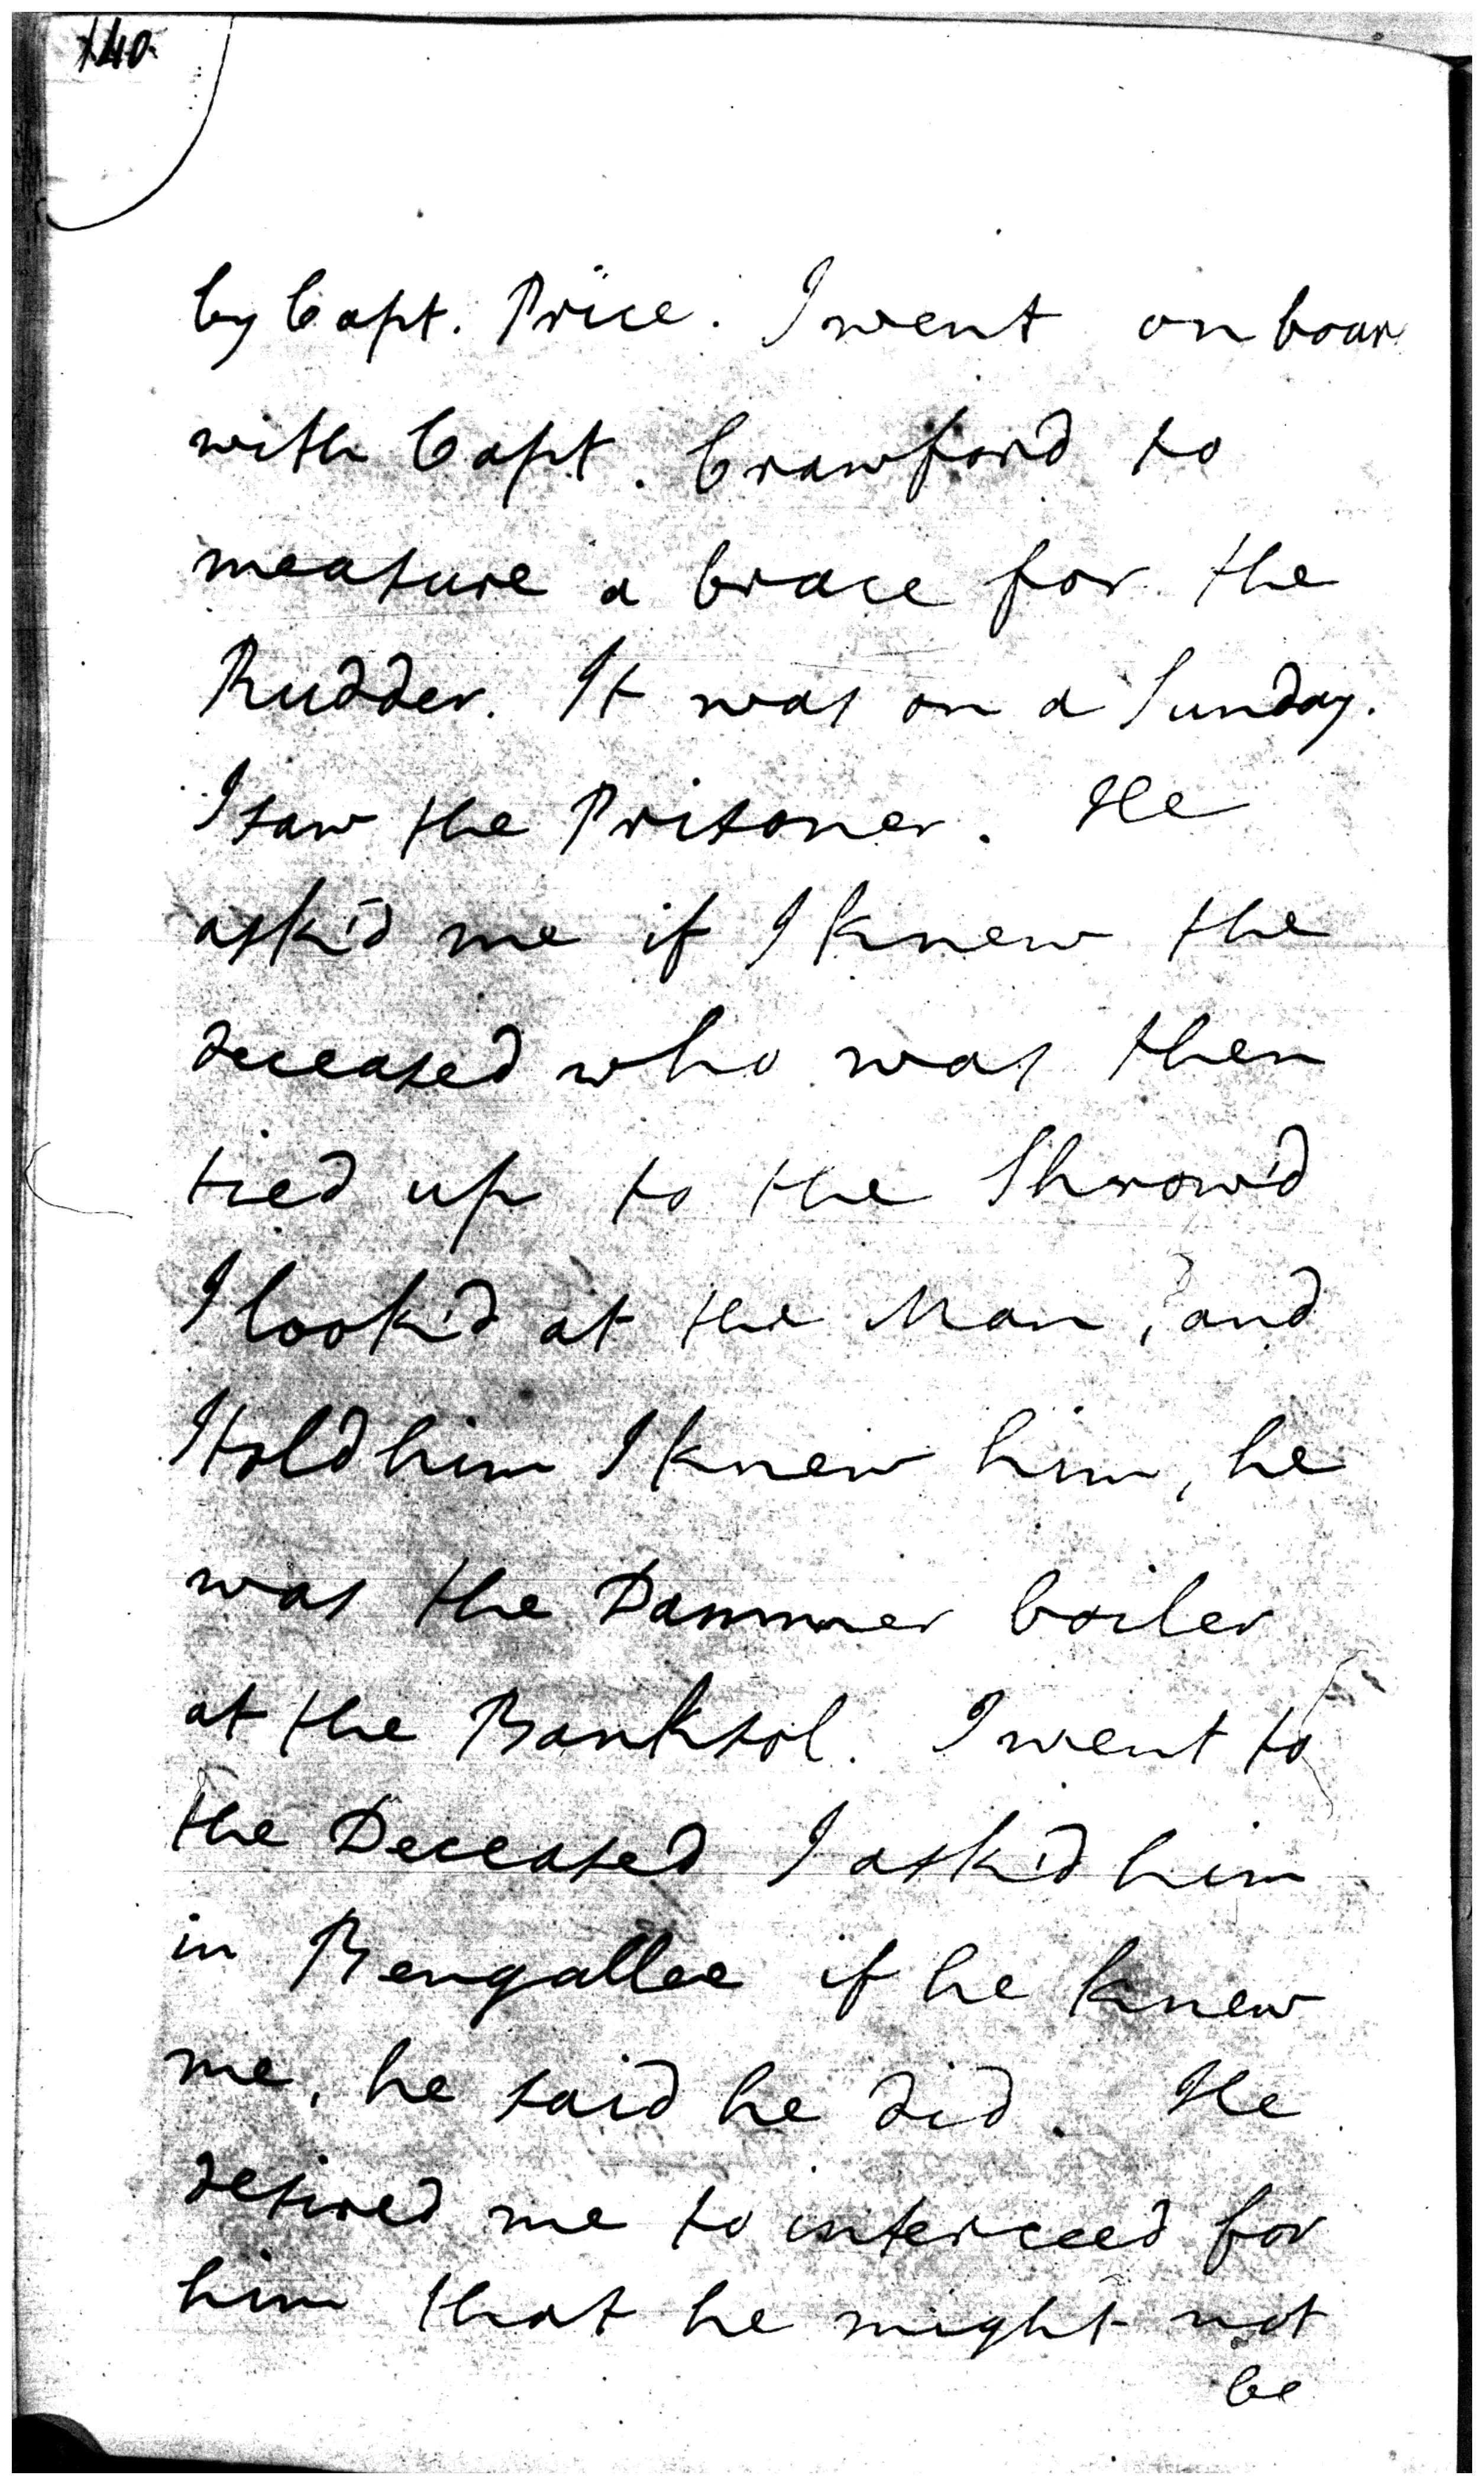 140
by Capt. Price. I went on boar
with Capt. Crawford to
measure a brace for the
Rudder. It was on a Sunday.
I saw the Prisoner. He
ask'd me if I knew the
deceased who was then
tied up to the Shrow'd
I look'd at the Man, and
I told him I knew him, he
was the Dammer boiler
at the Banksol. I went to
the Deceased I ask'd him
in Bengallee if he knew
me, he said he did. He
desired me to interceed for
him that he might not
be